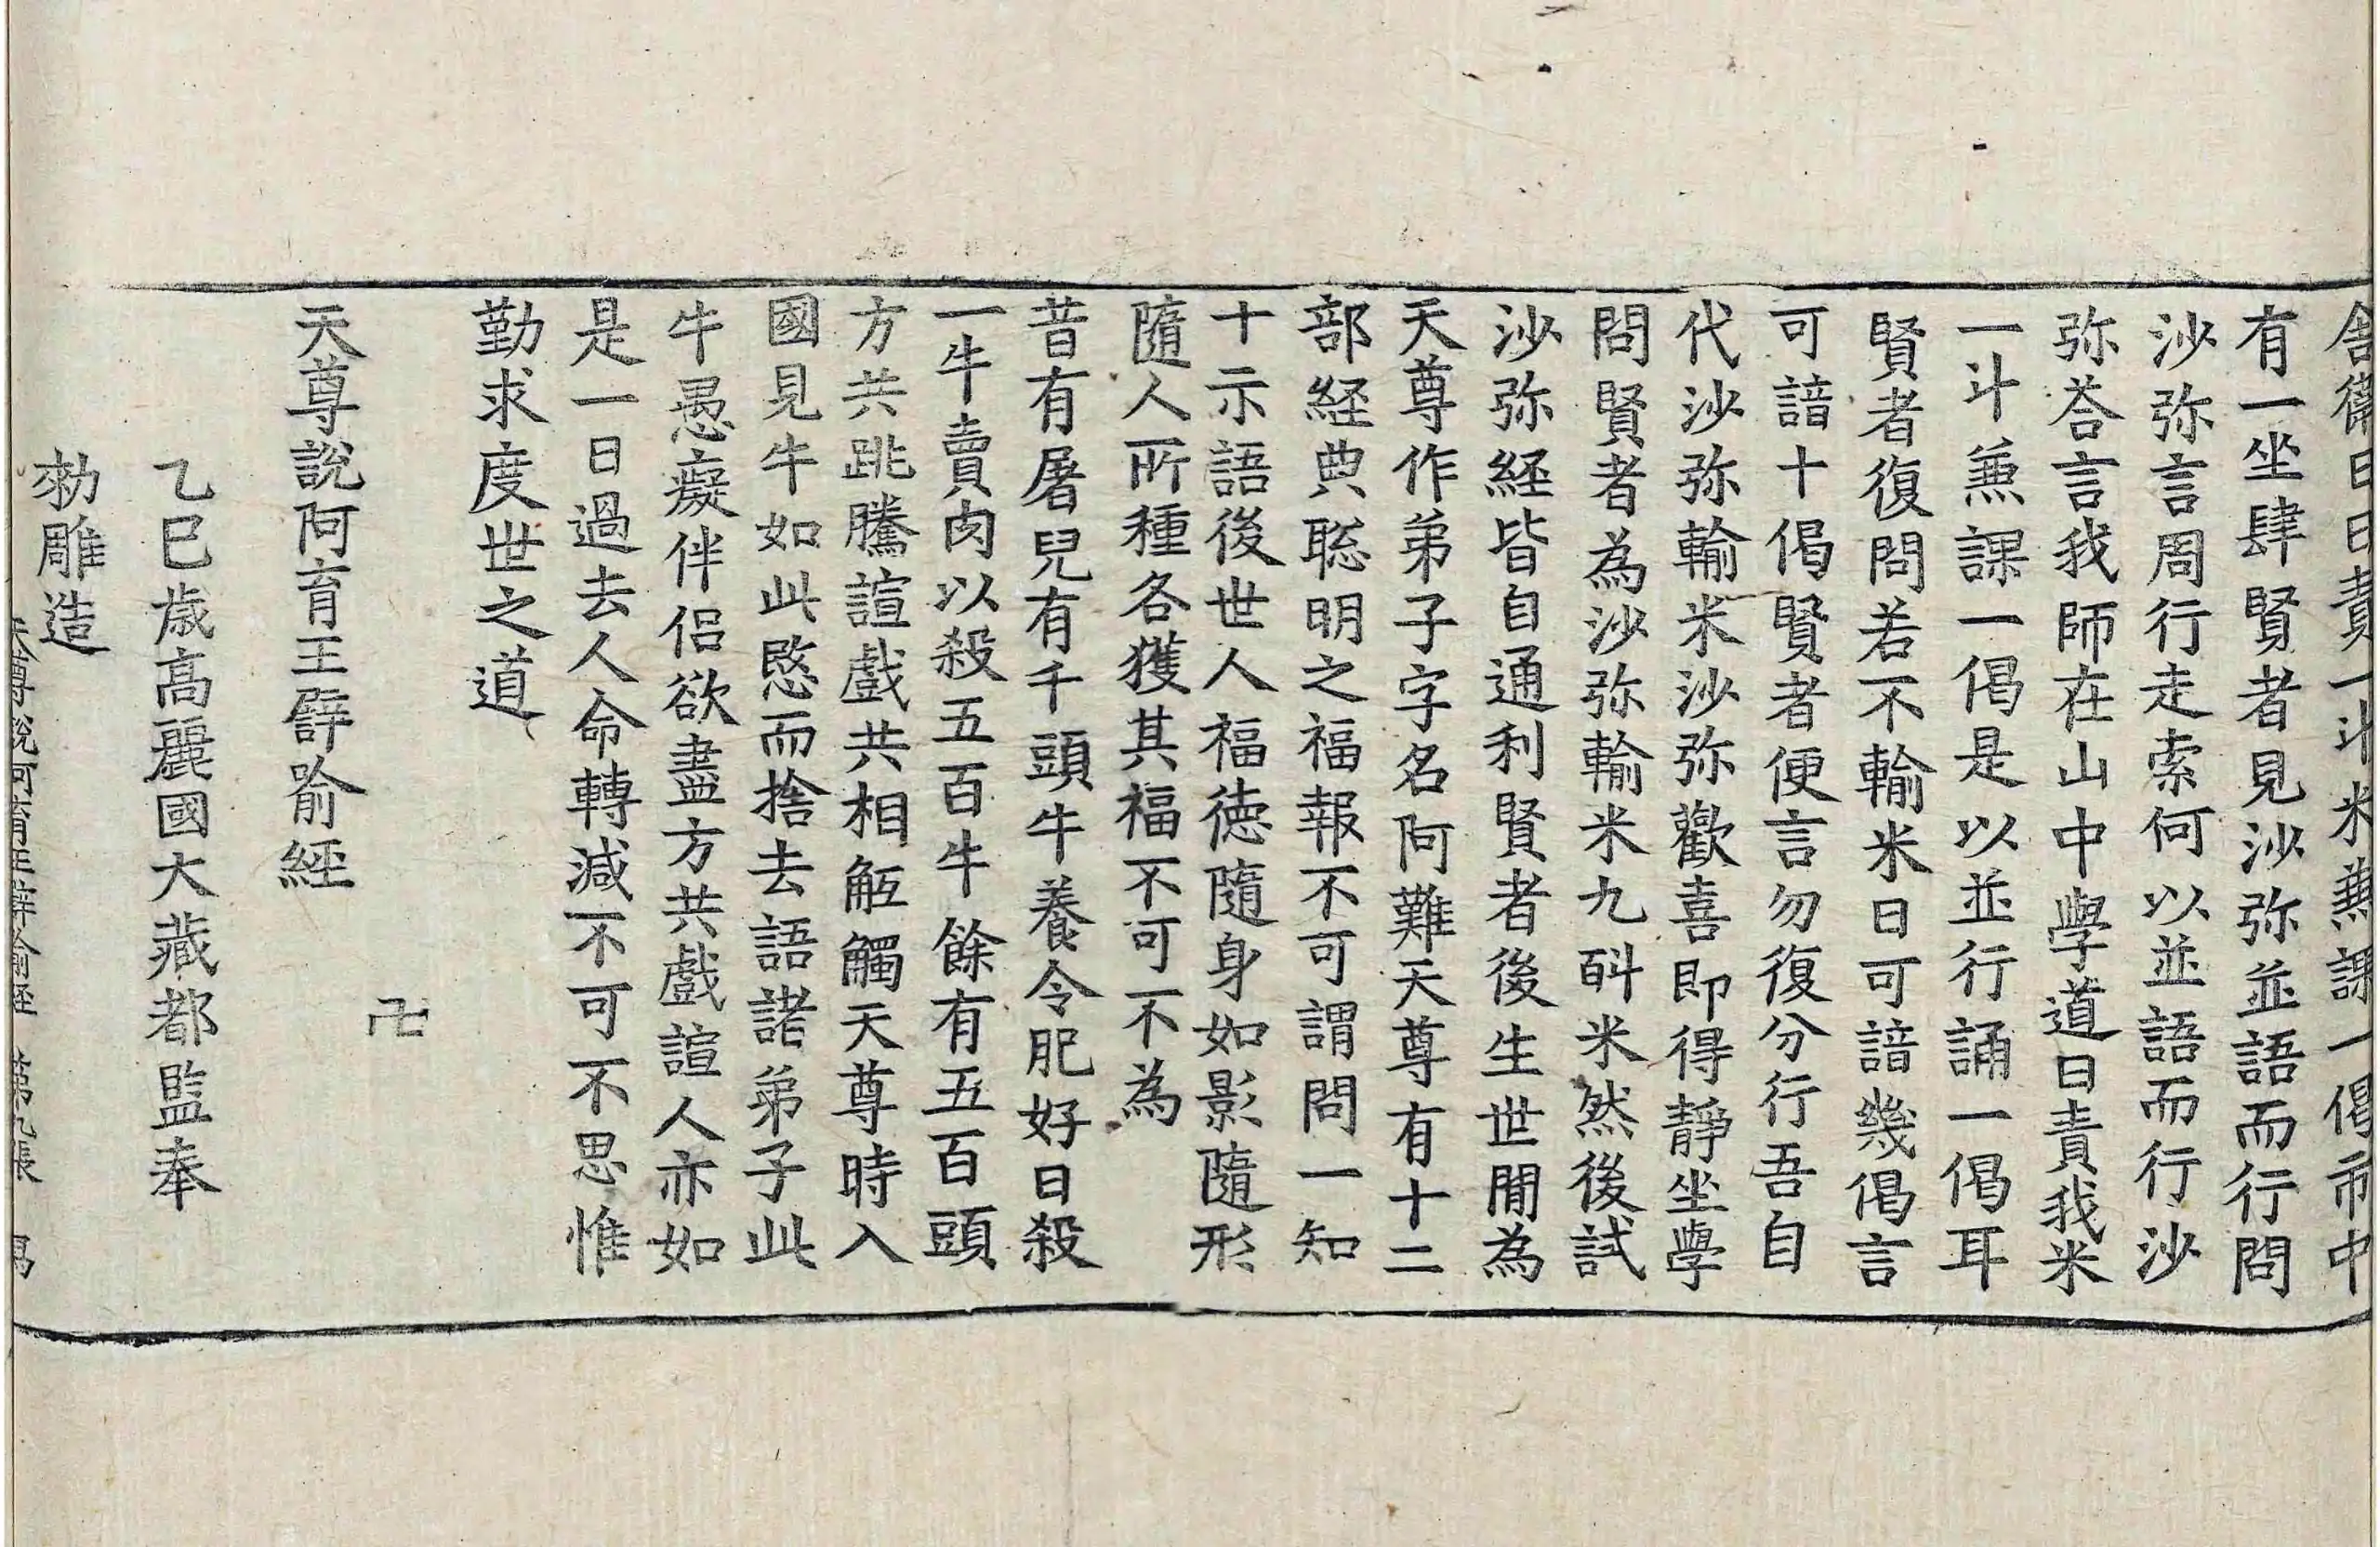 舎衛日日責一斗米兼課一偈市中
有一坐肆賢者見沙弥並語而行問
沙弥言周行走索何以並語而行沙
弥荅言我師在山中學道日責我米
一斗兼課一偈是以並行誦一偈耳
賢者復問若不輸米日可諳幾偈言
可諳十偈賢者便言勿復分行吾自
代沙弥輸米沙弥歡喜即得靜坐學
問賢者為沙弥輸米九㪷米然後試
沙弥経皆自通利賢者後生世閒為
天尊作弟子字名阿難天尊有十二
部経典聡明之福報不可謂問一知
十示語後世人福徳隨身如影隨形
隨人所種各獲其福不可不為
昔有屠兒有千頭牛養令肥好日殺
一牛賣肉以殺五百牛餘有五百頭
方共跳騰諠戲共相觝觸天尊時入
國見牛如此愍而捨去語諸弟子此
牛愚癡伴侣欲盡方共戲諠人亦如
是一日過去人命轉減不可不思惟
勤求度世之道
卍
天尊說阿育王譬喻經
乙巳歳高麗國大藏都監奉
勑雕造
天尊說阿育王譬喻経 第九張 㝵